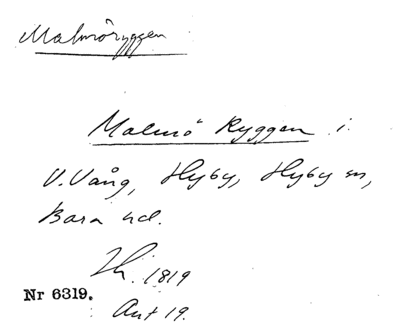 Malmöryggen
Malmö Ryggen i
V. Vång, Hyby, Hyby sn,
Bara hd.
Lh. 1819
Nr 6319.
Akt 19.